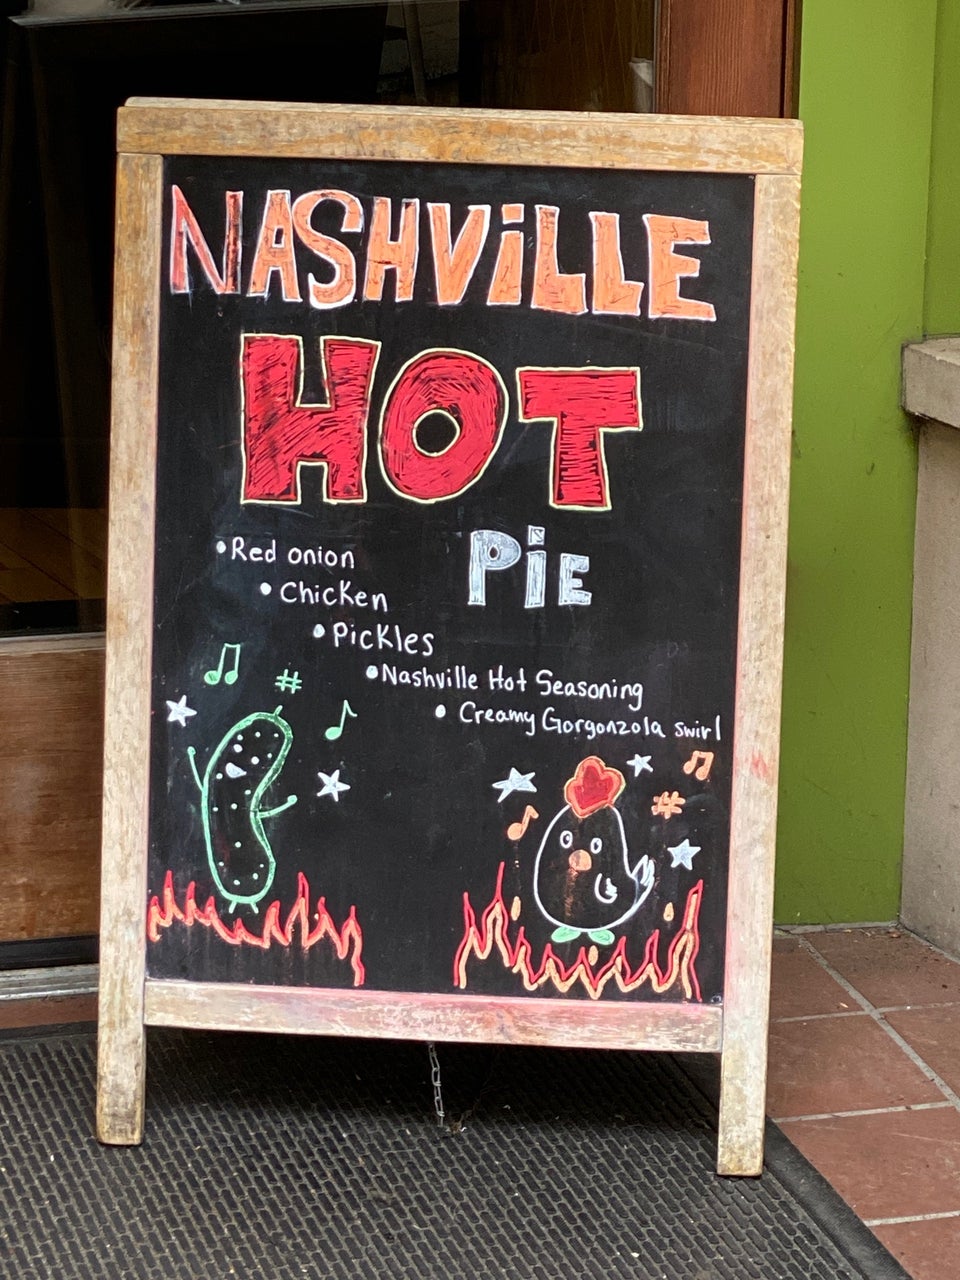 NASHViLLE
HOT
PiE
•Red onion
•Chicken
•Pickles
•Nashville Hot Seasoning
• Creamy Gorgonzola swirl